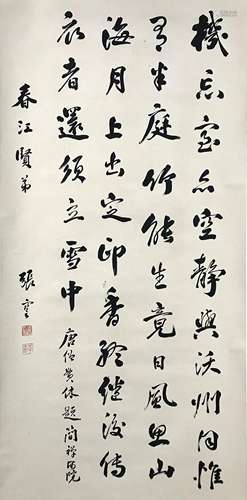 機忘室亦空靜與沃州同惟
有半庭竹能生竟日風思山
海月上出定印香終繼後傳
衣者還須立雪中 唐僧貫休題簡禪師院
春江賢弟 張